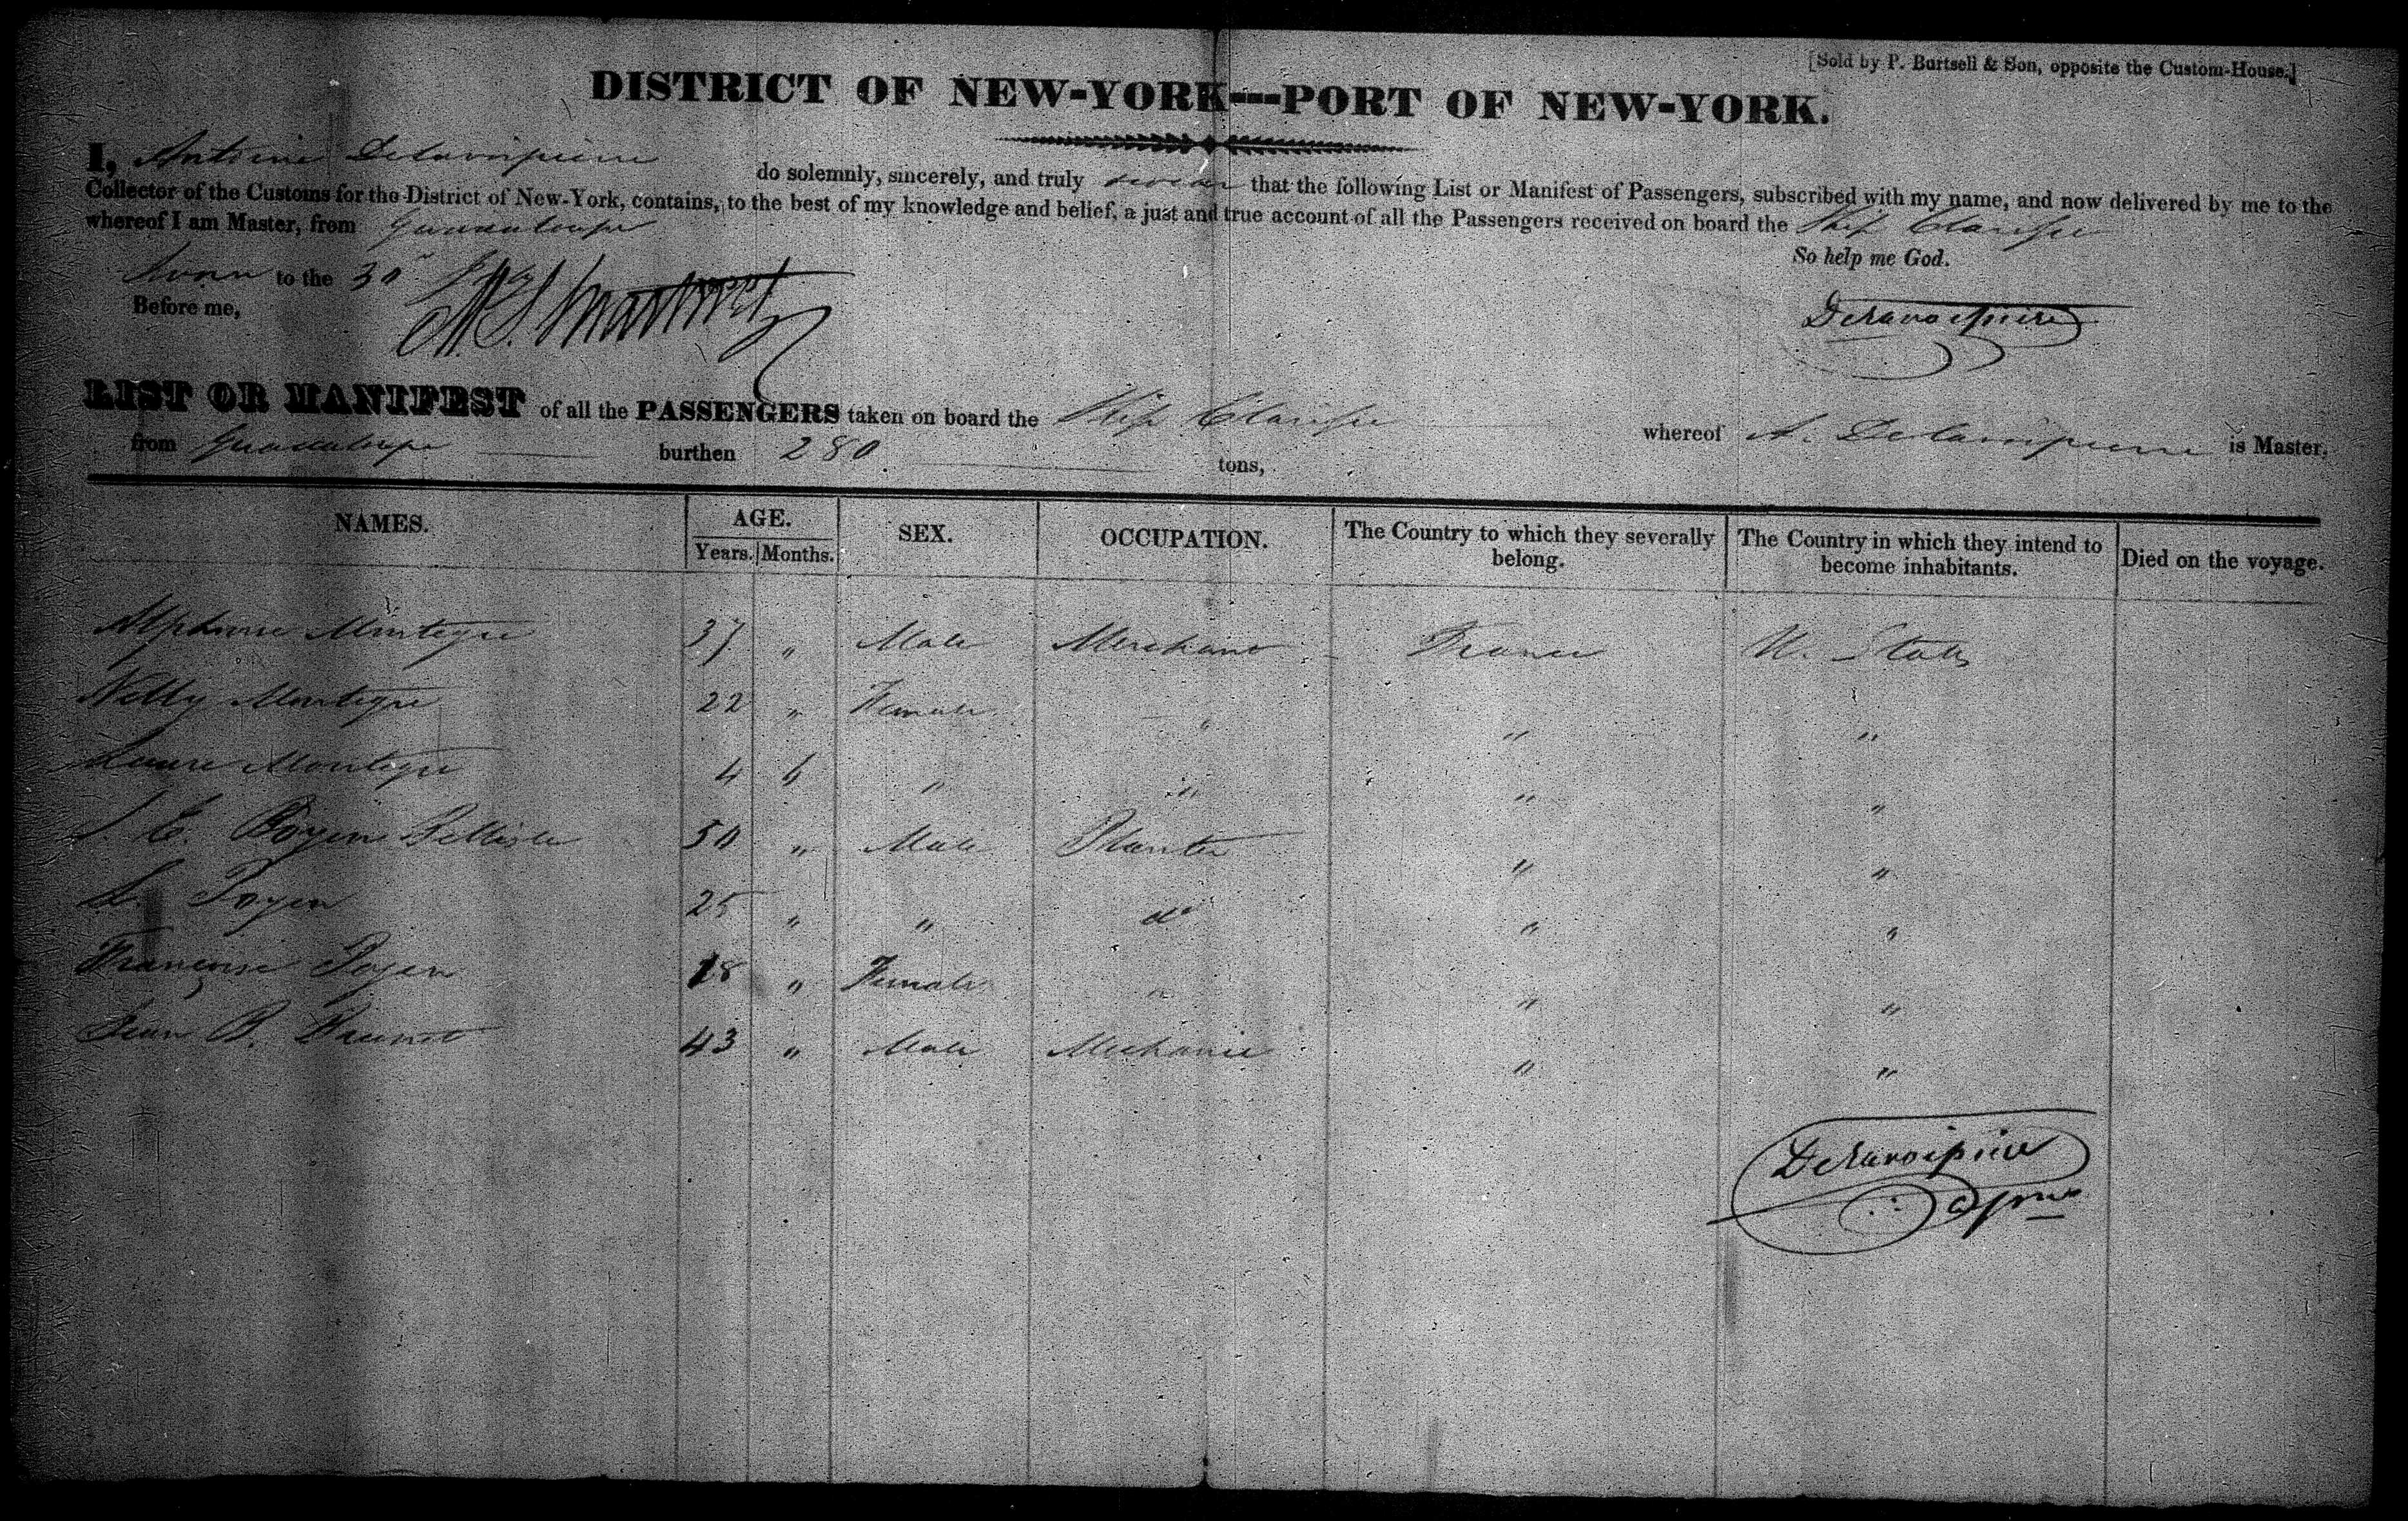 [Sold by P. Bartsell & Son, opposite the Custom-House.]
DISTRICT OF NEW-YORK---PORT OF NEW-YORK.
I, Antoine do solemnly, sincerely, and truly swear that the following List or Manifest of Passengers, subscribed with my name, and now delivered by me to the
Collector of the Customs for the District of New-York, contains, to the best of my knowledge and belief, a just and true account of all the Passengers received on board the Ship
whereof I am Master, from Guadaloupe
So help me God.
Sworn to the 30
Before me,
LIST OR MANIFEST of all the PASSENGERS taken on board the Ship whereof A. is Master,
from Guadaloupe burthen 280 tons,
NAMES. AGE. SEX. OCCUPATION. The Country to which they severally belong. The Country in which they intend to become inhabitants. Died on the voyage.
Years. Months.
Alphonse Montegre 37 " Male Merchant France U. States
Nelly Montegre 22 " Female " " "
Montegre 4 6 " " " "
50 " Male Planter " "
L. Poyen 25 " " do " "
Françoise Poyen 18 " Female " " "
Jean B. 43 " Male Mechanic " "